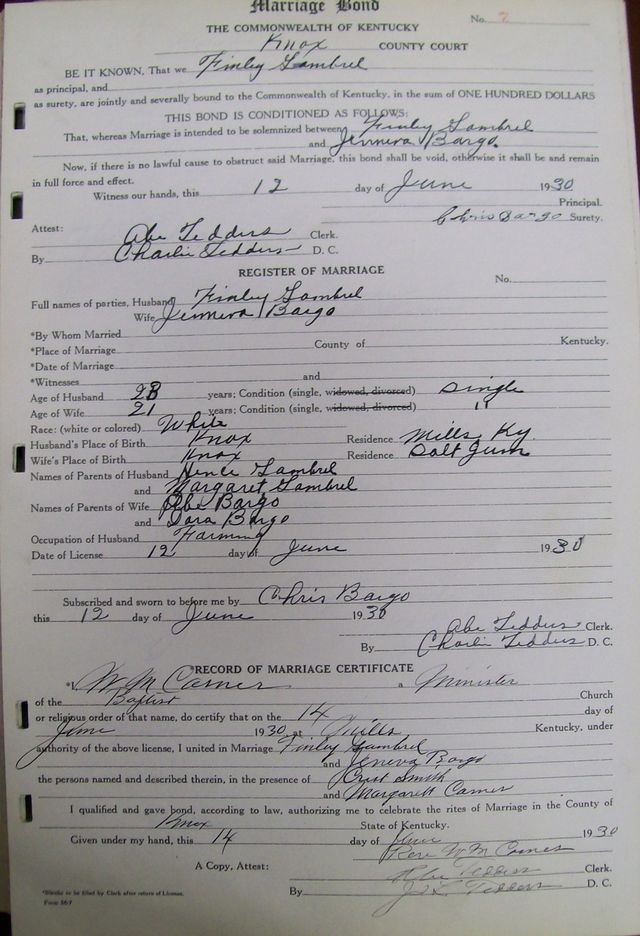 Marriage Bond
No. 7
THE COMMONWEALTH OF KENTUCKY
Knox COUNTY COURT
BE IT KNOWN, That we Finley Gambrel
as principal, and
as surety, are jointly and severally bound to the Commonwealth of Kentucky, in the sum of ONE HUNDRED DOLLARS
THIS BOND IS CONDITIONED AS FOLLOWS:
That, whereas Marriage is intended to be solemnized between Finley Gambrel
and Jenneva Bargo
Now, if there is no lawful cause to obstruct said Marriage, this bond shall be void, otherwise it shall be and remain
in full force and effect.
Witness our hands, this 12 day of June 1930
Principal.
Chris Bargo Surety.
Attest:
Abe Tedders Clerk.
By Charlie Tedders D. C.
REGISTER OF MARRIAGE
No.
Full names of parties, Husband Finley Gambrel
Wife Jenneva Bargo
*By Whom Married
*Place of Marriage County of Kentucky.
*Date of Marriage
*Witnesses and
Age of Husband 23 years; Condition (single, widowed, divorced) Single
Age of Wife 21 years; Condition (single, widowed, divorced) "
Race: (white or colored) White
Husband's Place of Birth Knox Residence Mills Ky.
Wife's Place of Birth Knox Residence Salt Gum
Names of Parents of Husband Gambrel
and Margaret Gambrel
Names of Parents of Wife Abe Bargo
and Sara Bargo
Occupation of Husband Farming
Date of License 12 day of June 1930
Subscribed and sworn to before me by Chris Bargo
this 12 day of June 1930
Abe Tedders Clerk.
By Charlie Tedders D. C.
*RECORD OF MARRIAGE CERTIFICATE
*I, W M Carnes a Minister
of the Baptist Church
or religious order of that name, do certify that on the 14 day of
June 1930, at Mills Kentucky, under
authority of the above license, I united in Marriage Finley Gambrel
and Jeneva Bargo
the persons named and described therein, in the presence of Smith
and Margarett Carnes
I qualified and gave bond, according to law, authorizing me to celebrate the rites of Marriage in the County of
Knox State of Kentucky.
Given under my hand, this 14 day of June 1930
Reve W M Carnes
A Copy, Attest: Abe Tedders Clerk.
By Tedders D. C.
*Blanks to be filled by Clerk after return of License.